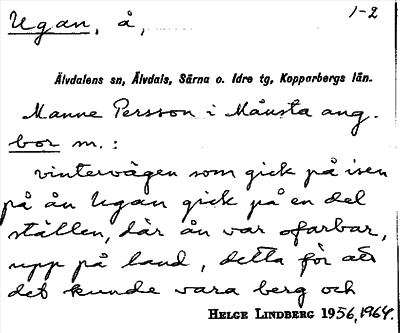 Ugan, å, 1-2
Älvdalens sn, Älvdals, Särna o. Idre tg, Kopparbergs län.
Manne Persson i Månsta ang.
bor m. :
vintervägen som gick på isen
på ån Ugan gick på en del
ställen, där ån var ofarbar,
upp på land, detta för att
det kunde vara berg och
HELGE LINDBERG 1956, 1964.